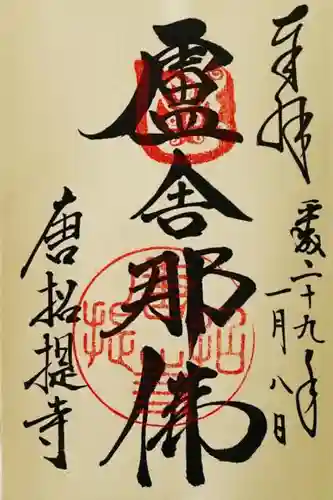 奉拝
平成二十九年
一月八日
盧舎那佛
唐招提寺